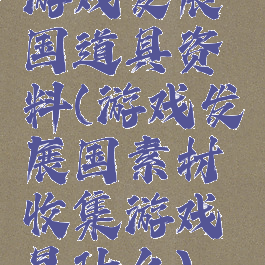 游戏发展
国道具资
料(游戏发
展国素材
收集游戏